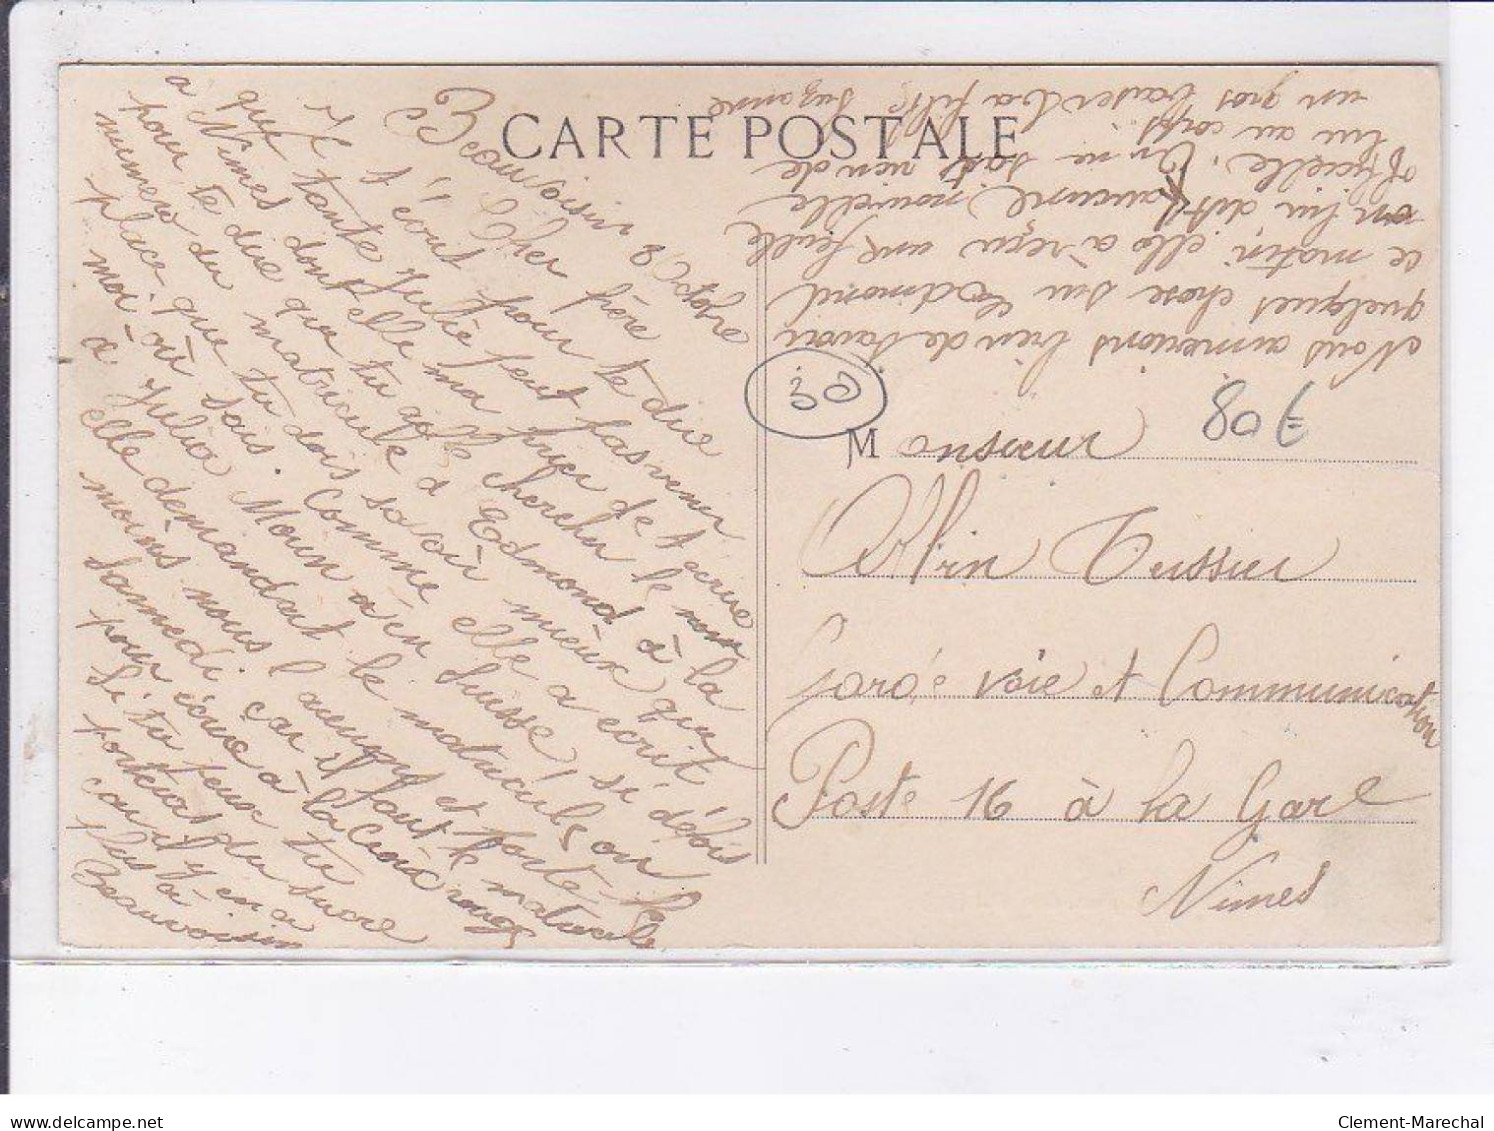 CARTE POSTALE
Beauvoisin 8 Octobre
Cher père
Je t'écris pour te dire
que tante Julie peut pas venir
a Nimes dont elle ma hier de t'ecrire
pour te dire que tu aille chercher le nom
numero du matricule d Edmond à la
place que tu dois savoir mieux que
moi où sais. Comme elle a ecrit
à Julia Moun a en Suisse, si débis
elle demandait le matricule on
moins nous l aurions et porté le
samedi car il faut le matricule
pour écrire à la Croix rouge
Si tu peux tu
porterias du sucre
car il y en a
plus à
Beauvoisin
Nous aimerions bien de savoir
quelques chose su Edmond
ce matin elle a reçu une feuille
on lui dit aucune nouvelle
officielle. On ne sait rien de
lui au corps.
un gros baiser ta fille Suzanne
30
80 F
Monsieur
Albin Teissier
Garde voie et Communication
Poste 16 à la Gare
Nimes
www.delcampe.net
Clement-Marechal